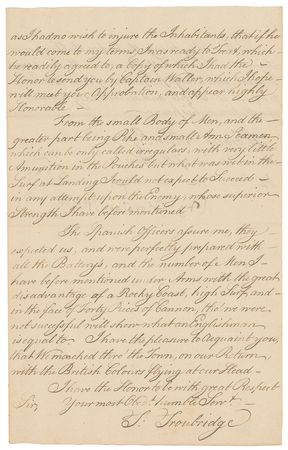 as I had no wish to injure the Inhabitants, that if he
would come to my terms I was ready to Treat, which
he readily agreed to, a Copy of which I had the
Honor to send you by Captain Waller, which I hope
will meet your Approbation, and appear highly
Honorable —
From the small Body of Men, and the
greater part being Pike and small Arm Seamen
which can be only called irregulars, with very little
Amunition in the Pouches but what was wet in the
Surf at Landing I could not expect to Succeed
in any attempt upon the Enemy, whose superior
Strength I have before mentioned
The Spanish Officers assure me, they
expected us, and were perfectly prepared with
all the Batterys, and the number of Men I
have before mentioned under Arms with the great
disadvantage of a Rocky Coast, high Surf, and
in the face of Forty Pieces of Cannon, tho' we were
not successful will shew what an Englishman
is equal to I have the pleasure to Acquaint you,
that We marched thro' the Town, on our Return
with the British Colours flying at our Head —
I have the Honor to be with great Respect
Sir, Your most Obdt. humble Servt.
T. Troubridge